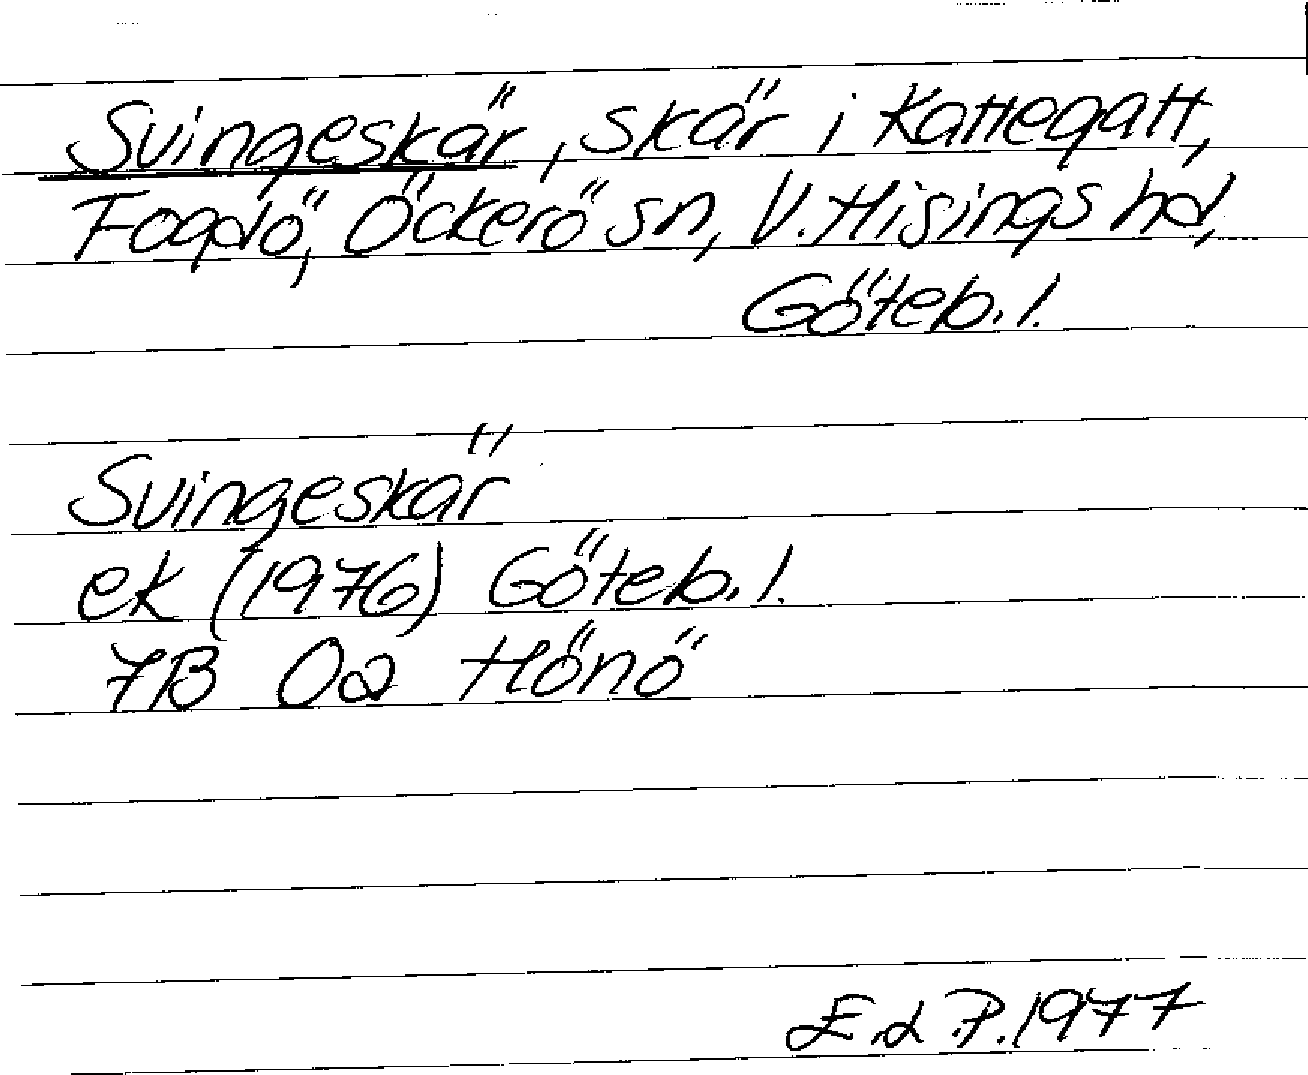 Svingeskär, skär i Kattegatt,
Fogdö, Öckerö sn, V. Hisings hd,
Göteb. l.
Svingeskär
ek (1976) Göteb. l.
7B 0a Hönö
E. d P. 1977